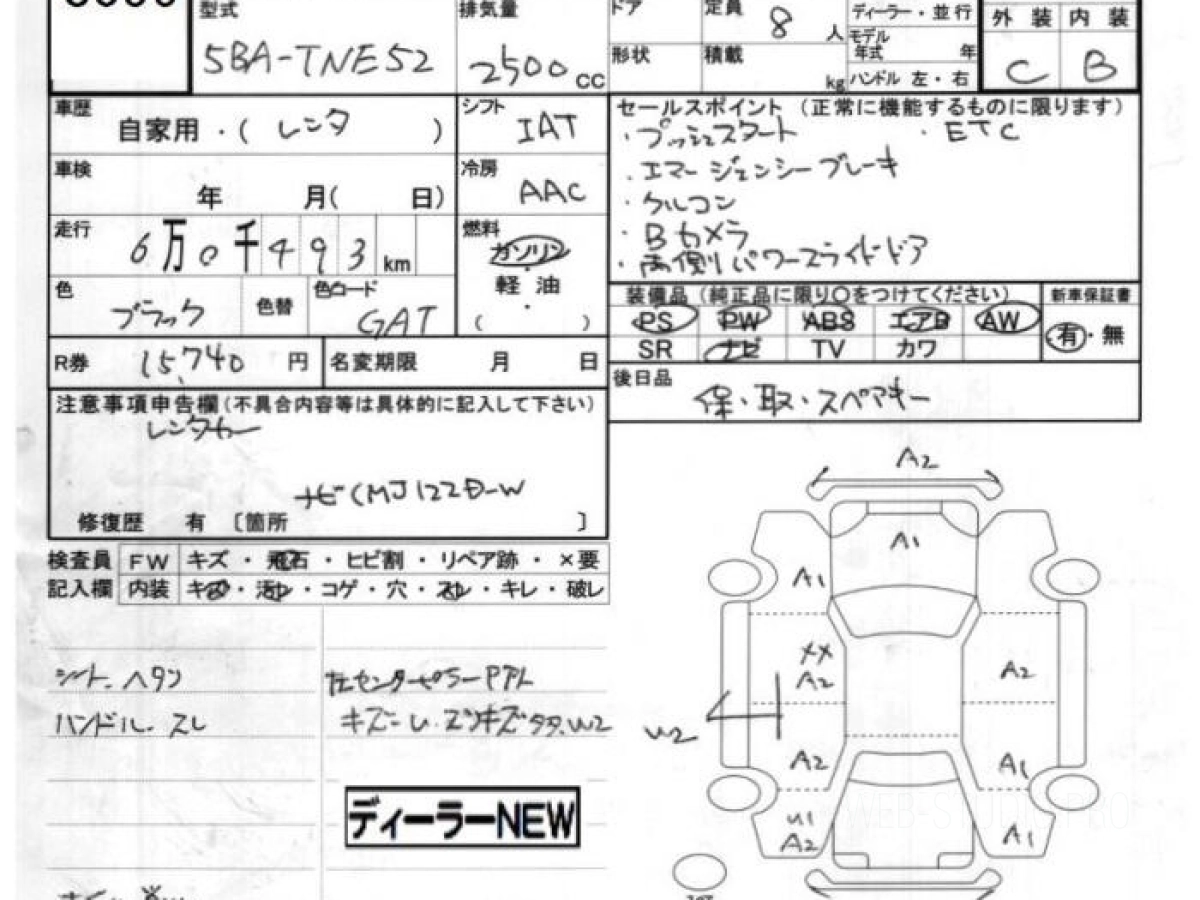 型式 排気量 ドア 定員 8 人 ディーラー・並行 外装 内装
5BA-TNE52 2500 CC 形状 積載 kg モデル年式 年 C B
ハンドル 左・右
車歴 自家用・( レンタ ) シフト IAT セールスポイント (正常に機能するものに限ります)
・プッシュスタート ・ETC
車検 年 月( 日) 冷房 AAC ・エマージェンシーブレーキ
・クルコン
走行 6万0千493km 燃料 ガソリン ・Bカメラ
・両側パワースライドドア
軽油
色 ブラック 色替 色コード GAT ( ) 装備品 (純正品に限り○をつけてください) 新車保証書
PS PW ABS エアB AW 有・無
R券 15,740 円 名変期限 月 日 SR ナビ TV カワ
注意事項申告欄(不具合内容等は具体的に記入して下さい) 後日品 保・取・スペアキー
レンタカー
ナビ(MJ122D-W
修復歴 有 [箇所 ]
検査員 FW キズ・飛石・ヒビ割・リペア跡・×要
記入欄 内装 キズ・汚レ・コゲ・穴・スレ・キレ・破レ
シート ヘタリ 左センターピラー
ハンドル スレ
ディーラーNEW
A2
A1
A1
XX
A2 A2
W2
A2 A1
U1
A2 A1
WEB-STUDIO.PRO